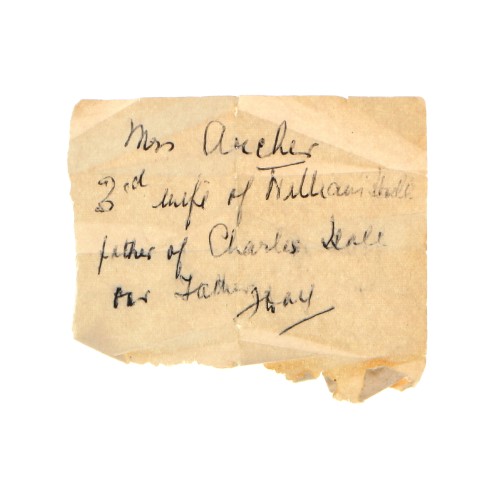 Mrs Archer
3rd wife of William Hall
father of Charles Hall
our Father